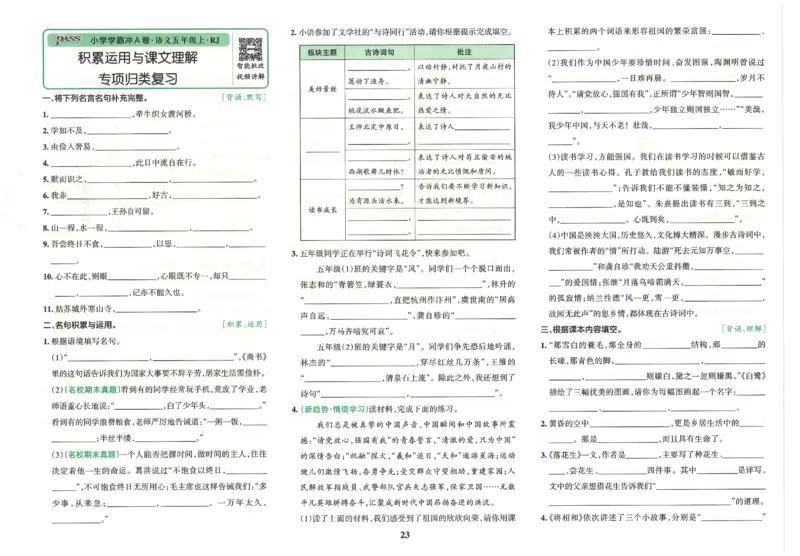 PASS 小学学霸冲A卷·语文五年级上·RJ
积累运用与课文理解
专项归类复习
智能批改
视频讲解
一、将下列名言名句补充完整。 [背诵、默写]
1. ____________,牵牛织女渡河桥。
2. 学如不及,____________。
3. 由俭入奢易,____________。
4. ____________,此日中流自在行。
5. 默而识之,____________,____________。
6. 我非____________,好古,____________。
7. ____________,王孙自可留。
8. 山一程,水一程,____________,____________。
9. 吾尝终日不食,____________,以思,____________,____________。
10. 心不在此,则眼____________,心眼既不专一,却只____________
____________,记亦不能久也。
11. 姑苏城外寒山寺,____________。
二、名句积累与运用。 [积累、运用]
1. 根据语境填写名句。
(1)“____________,____________”,《尚书》
里的这句话告诉我们为国家大事要不辞辛劳,居家生活需俭朴。
(2)(名校期末真题)看到有的同学经常玩手机,荒废了学业,老
师语重心长地说:“____________,白了少年头,____________。”
看到有的同学浪费粮食,老师严厉地告诫道:“一粥一饭,____________
____________;半丝半缕,____________。”
(3)(名校期末真题)一个人能否把握时间,做时间的主人,往往
决定着他一生的命运。葛洪说过“不饱食以终日,____________
____________”,不可饱食终日无所用心;毛主席也这样告诫我们:“多
少事,从来急;____________,____________。一万年太久,
____________。”
2. 小浒参加了文学社的“与诗同行”活动,请你根据提示完成填空。
板块主题 古诗词句 批注
美好景致
____________,
莲动下渔舟。
以动衬静,衬托了月夜山村的
清幽宁静。
____________,
桃花流水鳜鱼肥。
表达了诗人对大自然的无比
热爱之情。
王师北定中原日,
____________。
表达了诗人____________
____________,
西湖歌舞几时休?
表达了诗人对苟且偷安的统
治者的无比愤慨和质问。
读书成长
____________?
为有源头活水来。
告诉我们要不断学习新知识,
才能达到新境界。
3. 五年级同学正在举行“诗词飞花令”,快来参加吧。
五年级(1)班的关键字是“风”。同学们一个个脱口而出,
张志和的“青箬笠,绿蓑衣,____________”,林升的
“____________,直把杭州作汴州”,虞世南的“居高
声自远,____________”,龚自珍的“____________
____________,万马齐喑究可哀”。
五年级(2)班的关键字是“月”。同学们争先恐后地吟诵,
林杰的“____________,穿尽红丝几万条”,王维的
“____________,清泉石上流”。除此之外,我还想到了
诗句“____________,____________”。
4. (新趋势·情境学习)读材料,完成下面的练习。
我们总是被真挚的中国声音、中国瞬间和中国故事所震
撼:“请党放心,强国有我”的青春誓言,“清澈的爱,只为中国”
的深情告白;“祝融”探火,“羲和”逐日,“天和”遨游星海;运动
健儿们激情飞扬、奋勇争先;受灾群众守望相助,重建家园;人
民解放军指战员、武警部队官兵矢志强军,保家卫国……无数
平凡英雄拼搏奋斗,汇聚成新时代中国昂扬奋进的洪流。
(1)读了上面的材料,我们感受到了祖国的欣欣向荣,请你用课
本上积累的两个词语来形容祖国的繁荣富强:____________、
____________。
(2)我们作为中国少年要珍惜时间、奋发图强,陶渊明曾说过
“____________,一日难再晨。____________,岁月不
待人”。“请党放心,强国有我”,正所谓“少年智则国智,____________
____________,____________,少年独立则国独立……”“美哉,
我少年中国,与天不老!壮哉,____________,____________
____________”。
(3)读书学习,方能强国。我们在读书学习的时候可以借鉴古
人的一些读书心得。孔子教给我们读书的态度,“敏而好学,
____________”;告诉我们不能不懂装懂,“知之为知之,
____________,是知也”。朱熹提出读书有三到,“三到之
中,____________。心既到矣,____________”。
(4)中国是泱泱大国,历史悠久,文化博大精深。漫步古诗词中,
我们常被作者的“情”所打动。陆游“死去元知万事空,____________
____________”和龚自珍“我劝天公重抖擞,____________
____________”的爱国情;张继“月落乌啼霜满天,____________”
的孤寂情;纳兰性德“风一更,雪一更,____________,
故园无此声”的思乡情,都体现在古诗词中。
三、根据课本内容填空。 [背诵、理解]
1. “那雪白的蓑毛,那全身的____________结构,那____________的
长喙,那青色的脚,____________,____________
____________,____________则嫌白,黛之一忽则嫌黑。”《白鹭》
描绘了三幅优美的图画,请你为每幅图画起一个名字:____________
____________、____________、____________。
2. 黄昏的空中____________,更是乡居生活中的____________
____________。那是____________,而且具有生命了。
3. 《落花生》一文,作者是____________,主要写了种花生、____________
____________、尝花生、____________四件事。其中____________是详写。
文中的父亲想借花生告诉我们“____________
____________”的道理。
4. 《将相和》依次讲述了三个小故事,分别是“____________”
23